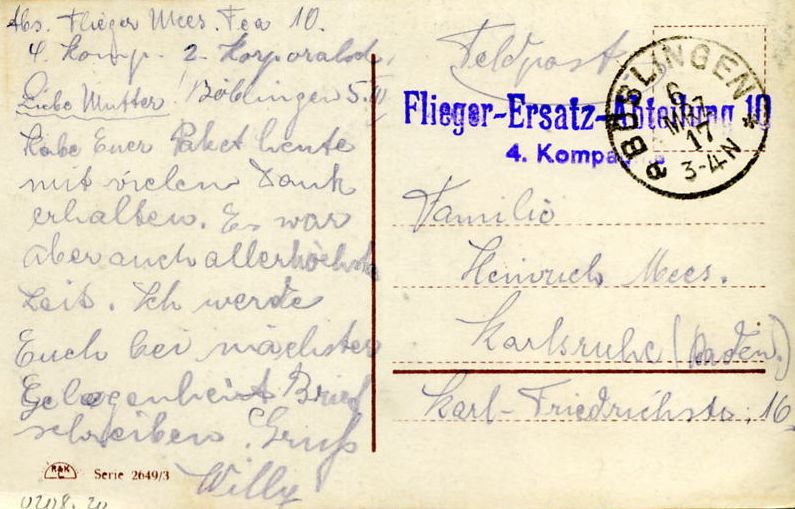 Abs. Flieger Mees. Fea 10.
4. Komp. 2. Korporalsch.
Böblingen 5.III
Liebe Mutter!
Habe Euer Paket heute
mit vielen Dank
erhalten. Es war
aber auch allerhöchste
Zeit. Ich werde
Euch bei nächster
Gelegenheit Brief
schreiben. Gruß
Willy
R&K
Serie 2649/3
0208.20
Feldpost
Flieger-Ersatz-Abteilung 10
4. Kompagnie
BÖBLINGEN
6 MRZ 17
3-4N
Familie
Heinrich Mees.
Karlsruhe (Baden.)
Karl-Friedrichstr. 16